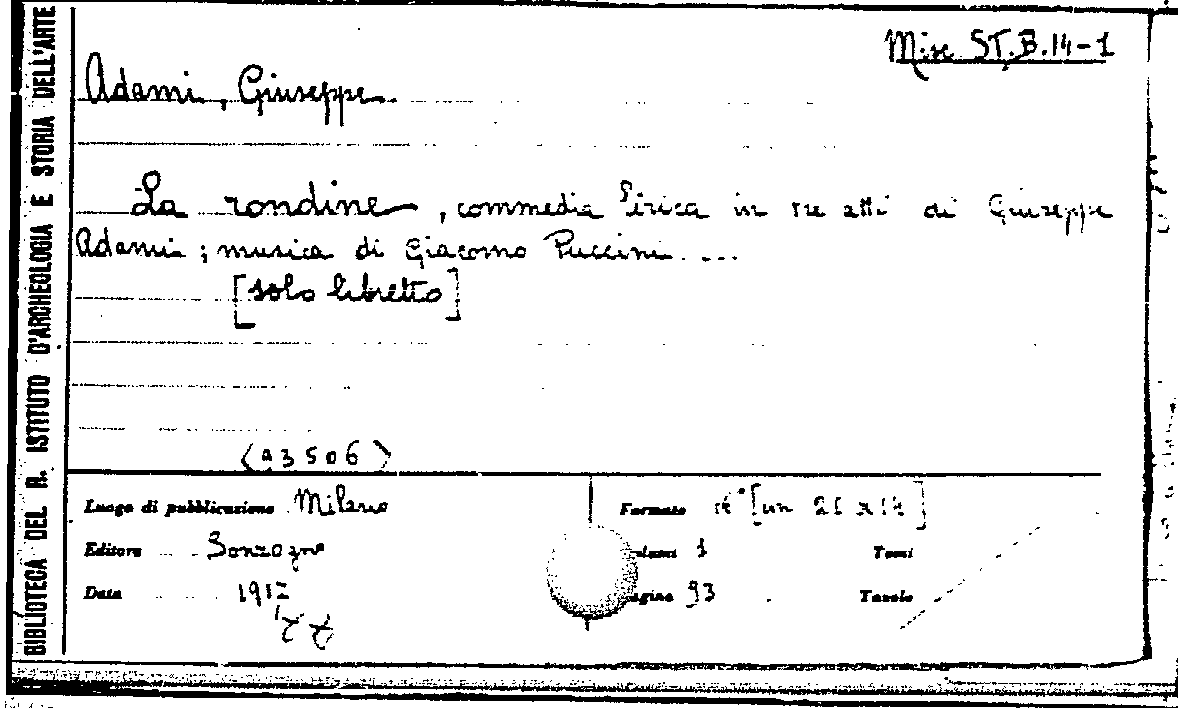 BIBLIOTECA DEL R. ISTITUTO D'ARCHEOLOGIA E STORIA DELL'ARTE
Misc ST.B.14-1
Adami, Giuseppe
La rondine, commedia lirica in tre atti di Giuseppe
Adami; musica di Giacomo Puccini....
[solo libretto]
(a3506)
Luogo di pubblicazione Milano
Formato 16° [cm 21 x 14]
Editore Sonzogno
Volumi 1 Tomi
Data 1917
Pagine 93 Tavole